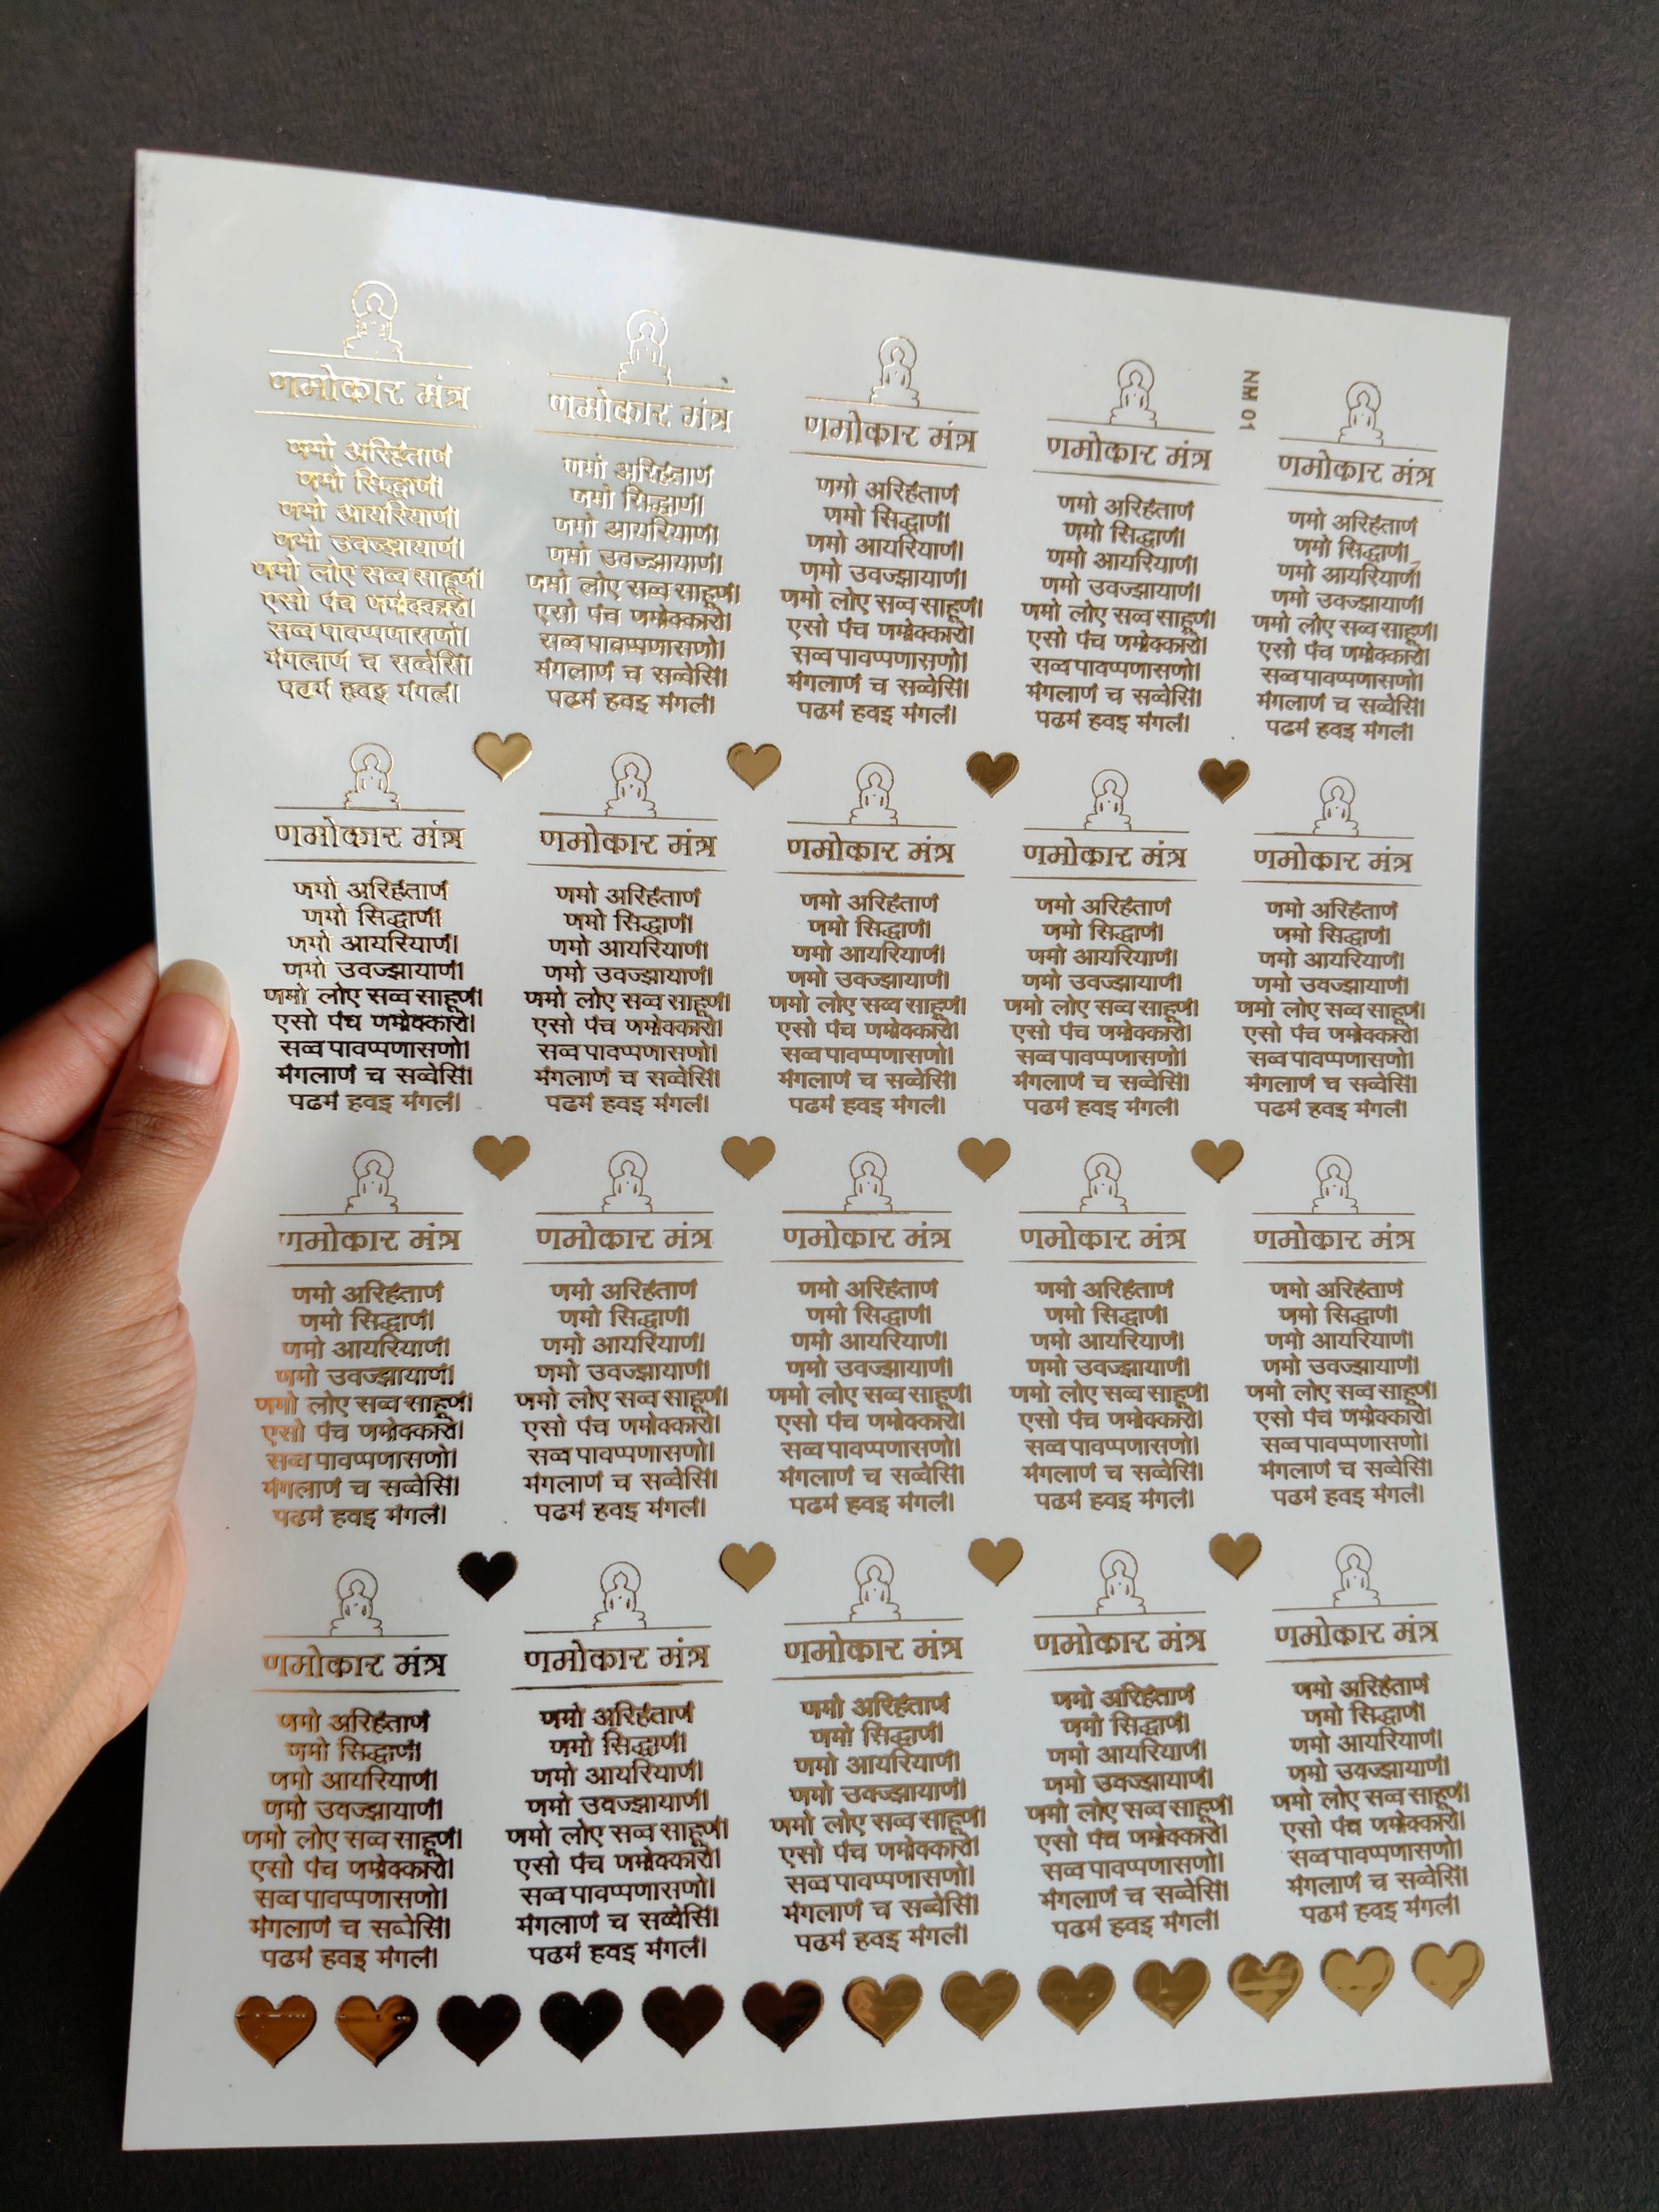 णमोकार मंत्र
णमो अरिहंताणं
णमो सिद्धाणं।
णमो आयरियाणं।
णमो उवज्झायाणं।
णमो लोए सव्व साहूणं।
एसो पंच णमोक्कारो।
सव्व पावप्पणासणो।
मंगलाणं च सव्वेसिं।
पढमं हवइ मंगलं।
णमोकार मंत्र
णमो अरिहंताणं
णमो सिद्धाणं।
णमो आयरियाणं।
णमो उवज्झायाणं।
णमो लोए सव्व साहूणं।
एसो पंच णमोक्कारो।
सव्व पावप्पणासणो।
मंगलाणं च सव्वेसिं।
पढमं हवइ मंगलं।
णमोकार मंत्र
णमो अरिहंताणं
णमो सिद्धाणं।
णमो आयरियाणं।
णमो उवज्झायाणं।
णमो लोए सव्व साहूणं।
एसो पंच णमोक्कारो।
सव्व पावप्पणासणो।
मंगलाणं च सव्वेसिं।
पढमं हवइ मंगलं।
णमोकार मंत्र
णमो अरिहंताणं
णमो सिद्धाणं।
णमो आयरियाणं।
णमो उवज्झायाणं।
णमो लोए सव्व साहूणं।
एसो पंच णमोक्कारो।
सव्व पावप्पणासणो।
मंगलाणं च सव्वेसिं।
पढमं हवइ मंगलं।
NM 01
णमोकार मंत्र
णमो अरिहंताणं
णमो सिद्धाणं।
णमो आयरियाणं।
णमो उवज्झायाणं।
णमो लोए सव्व साहूणं।
एसो पंच णमोक्कारो।
सव्व पावप्पणासणो।
मंगलाणं च सव्वेसिं।
पढमं हवइ मंगलं।
णमोकार मंत्र
णमो अरिहंताणं
णमो सिद्धाणं।
णमो आयरियाणं।
णमो उवज्झायाणं।
णमो लोए सव्व साहूणं।
एसो पंच णमोक्कारो।
सव्व पावप्पणासणो।
मंगलाणं च सव्वेसिं।
पढमं हवइ मंगलं।
णमोकार मंत्र
णमो अरिहंताणं
णमो सिद्धाणं।
णमो आयरियाणं।
णमो उवज्झायाणं।
णमो लोए सव्व साहूणं।
एसो पंच णमोक्कारो।
सव्व पावप्पणासणो।
मंगलाणं च सव्वेसिं।
पढमं हवइ मंगलं।
णमोकार मंत्र
णमो अरिहंताणं
णमो सिद्धाणं।
णमो आयरियाणं।
णमो उवज्झायाणं।
णमो लोए सव्व साहूणं।
एसो पंच णमोक्कारो।
सव्व पावप्पणासणो।
मंगलाणं च सव्वेसिं।
पढमं हवइ मंगलं।
णमोकार मंत्र
णमो अरिहंताणं
णमो सिद्धाणं।
णमो आयरियाणं।
णमो उवज्झायाणं।
णमो लोए सव्व साहूणं।
एसो पंच णमोक्कारो।
सव्व पावप्पणासणो।
मंगलाणं च सव्वेसिं।
पढमं हवइ मंगलं।
णमोकार मंत्र
णमो अरिहंताणं
णमो सिद्धाणं।
णमो आयरियाणं।
णमो उवज्झायाणं।
णमो लोए सव्व साहूणं।
एसो पंच णमोक्कारो।
सव्व पावप्पणासणो।
मंगलाणं च सव्वेसिं।
पढमं हवइ मंगलं।
णमोकार मंत्र
णमो अरिहंताणं
णमो सिद्धाणं।
णमो आयरियाणं।
णमो उवज्झायाणं।
णमो लोए सव्व साहूणं।
एसो पंच णमोक्कारो।
सव्व पावप्पणासणो।
मंगलाणं च सव्वेसिं।
पढमं हवइ मंगलं।
णमोकार मंत्र
णमो अरिहंताणं
णमो सिद्धाणं।
णमो आयरियाणं।
णमो उवज्झायाणं।
णमो लोए सव्व साहूणं।
एसो पंच णमोक्कारो।
सव्व पावप्पणासणो।
मंगलाणं च सव्वेसिं।
पढमं हवइ मंगलं।
णमोकार मंत्र
णमो अरिहंताणं
णमो सिद्धाणं।
णमो आयरियाणं।
णमो उवज्झायाणं।
णमो लोए सव्व साहूणं।
एसो पंच णमोक्कारो।
सव्व पावप्पणासणो।
मंगलाणं च सव्वेसिं।
पढमं हवइ मंगलं।
णमोकार मंत्र
णमो अरिहंताणं
णमो सिद्धाणं।
णमो आयरियाणं।
णमो उवज्झायाणं।
णमो लोए सव्व साहूणं।
एसो पंच णमोक्कारो।
सव्व पावप्पणासणो।
मंगलाणं च सव्वेसिं।
पढमं हवइ मंगलं।
णमोकार मंत्र
णमो अरिहंताणं
णमो सिद्धाणं।
णमो आयरियाणं।
णमो उवज्झायाणं।
णमो लोए सव्व साहूणं।
एसो पंच णमोक्कारो।
सव्व पावप्पणासणो।
मंगलाणं च सव्वेसिं।
पढमं हवइ मंगलं।
णमोकार मंत्र
णमो अरिहंताणं
णमो सिद्धाणं।
णमो आयरियाणं।
णमो उवज्झायाणं।
णमो लोए सव्व साहूणं।
एसो पंच णमोक्कारो।
सव्व पावप्पणासणो।
मंगलाणं च सव्वेसिं।
पढमं हवइ मंगलं।
णमोकार मंत्र
णमो अरिहंताणं
णमो सिद्धाणं।
णमो आयरियाणं।
णमो उवज्झायाणं।
णमो लोए सव्व साहूणं।
एसो पंच णमोक्कारो।
सव्व पावप्पणासणो।
मंगलाणं च सव्वेसिं।
पढमं हवइ मंगलं।
णमोकार मंत्र
णमो अरिहंताणं
णमो सिद्धाणं।
णमो आयरियाणं।
णमो उवज्झायाणं।
णमो लोए सव्व साहूणं।
एसो पंच णमोक्कारो।
सव्व पावप्पणासणो।
मंगलाणं च सव्वेसिं।
पढमं हवइ मंगलं।
णमोकार मंत्र
णमो अरिहंताणं
णमो सिद्धाणं।
णमो आयरियाणं।
णमो उवज्झायाणं।
णमो लोए सव्व साहूणं।
एसो पंच णमोक्कारो।
सव्व पावप्पणासणो।
मंगलाणं च सव्वेसिं।
पढमं हवइ मंगलं।
णमोकार मंत्र
णमो अरिहंताणं
णमो सिद्धाणं।
णमो आयरियाणं।
णमो उवज्झायाणं।
णमो लोए सव्व साहूणं।
एसो पंच णमोक्कारो।
सव्व पावप्पणासणो।
मंगलाणं च सव्वेसिं।
पढमं हवइ मंगलं।